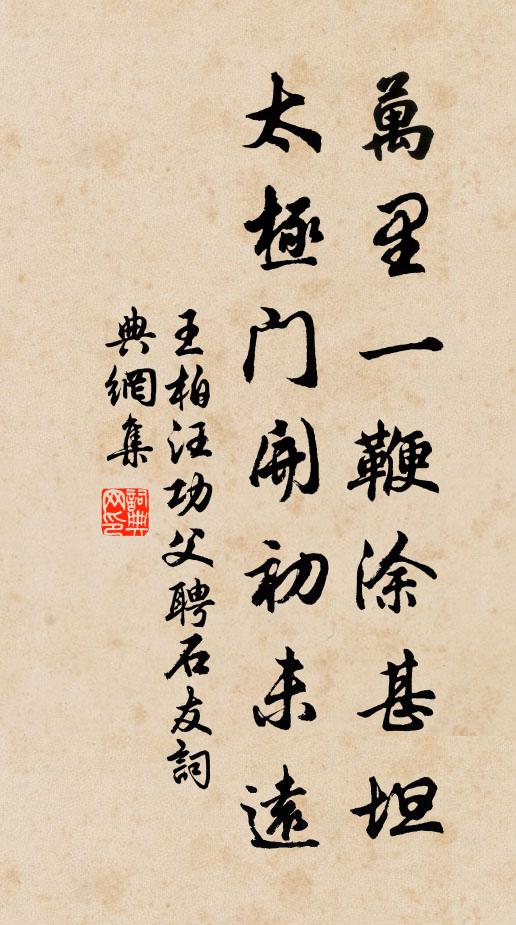 萬里一鞭涂甚坦
太極門開初未遠
王柏汪功父聘石友詞
典網集
詞典網印